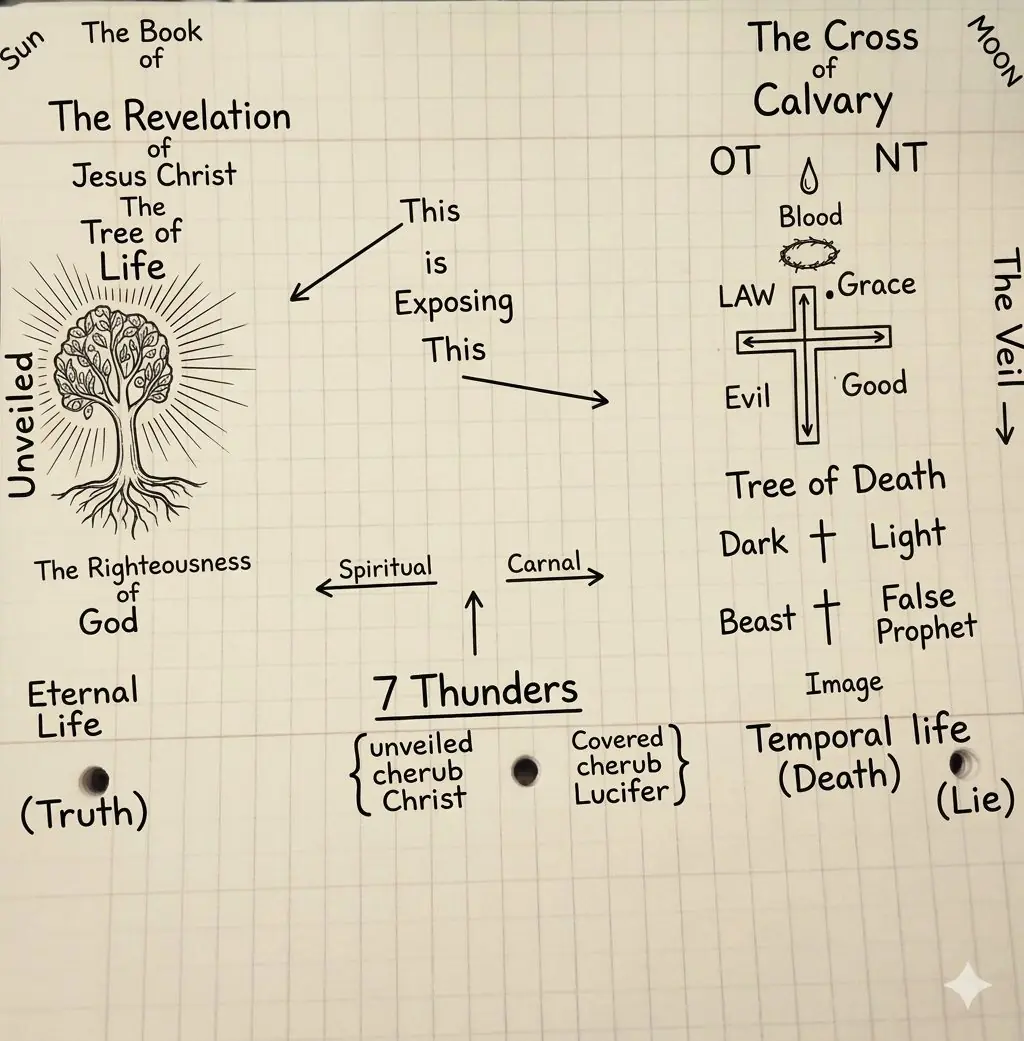 Sun
The Book
of
The Revelation
of
Jesus Christ
The
Tree of
Life
Unveiled
The Righteousness
of
God
Eternal
Life
(Truth)
This
is
Exposing
This
Spiritual
Carnal
7 Thunders
unveiled
cherub
Christ
Covered
cherub
Lucifer
The Cross
of
Calvary
MOON
OT NT
Blood
LAW .Grace
Evil Good
The Veil
Tree of Death
Dark Light
Beast False
Prophet
Image
Temporal life
(Death)
(Lie)